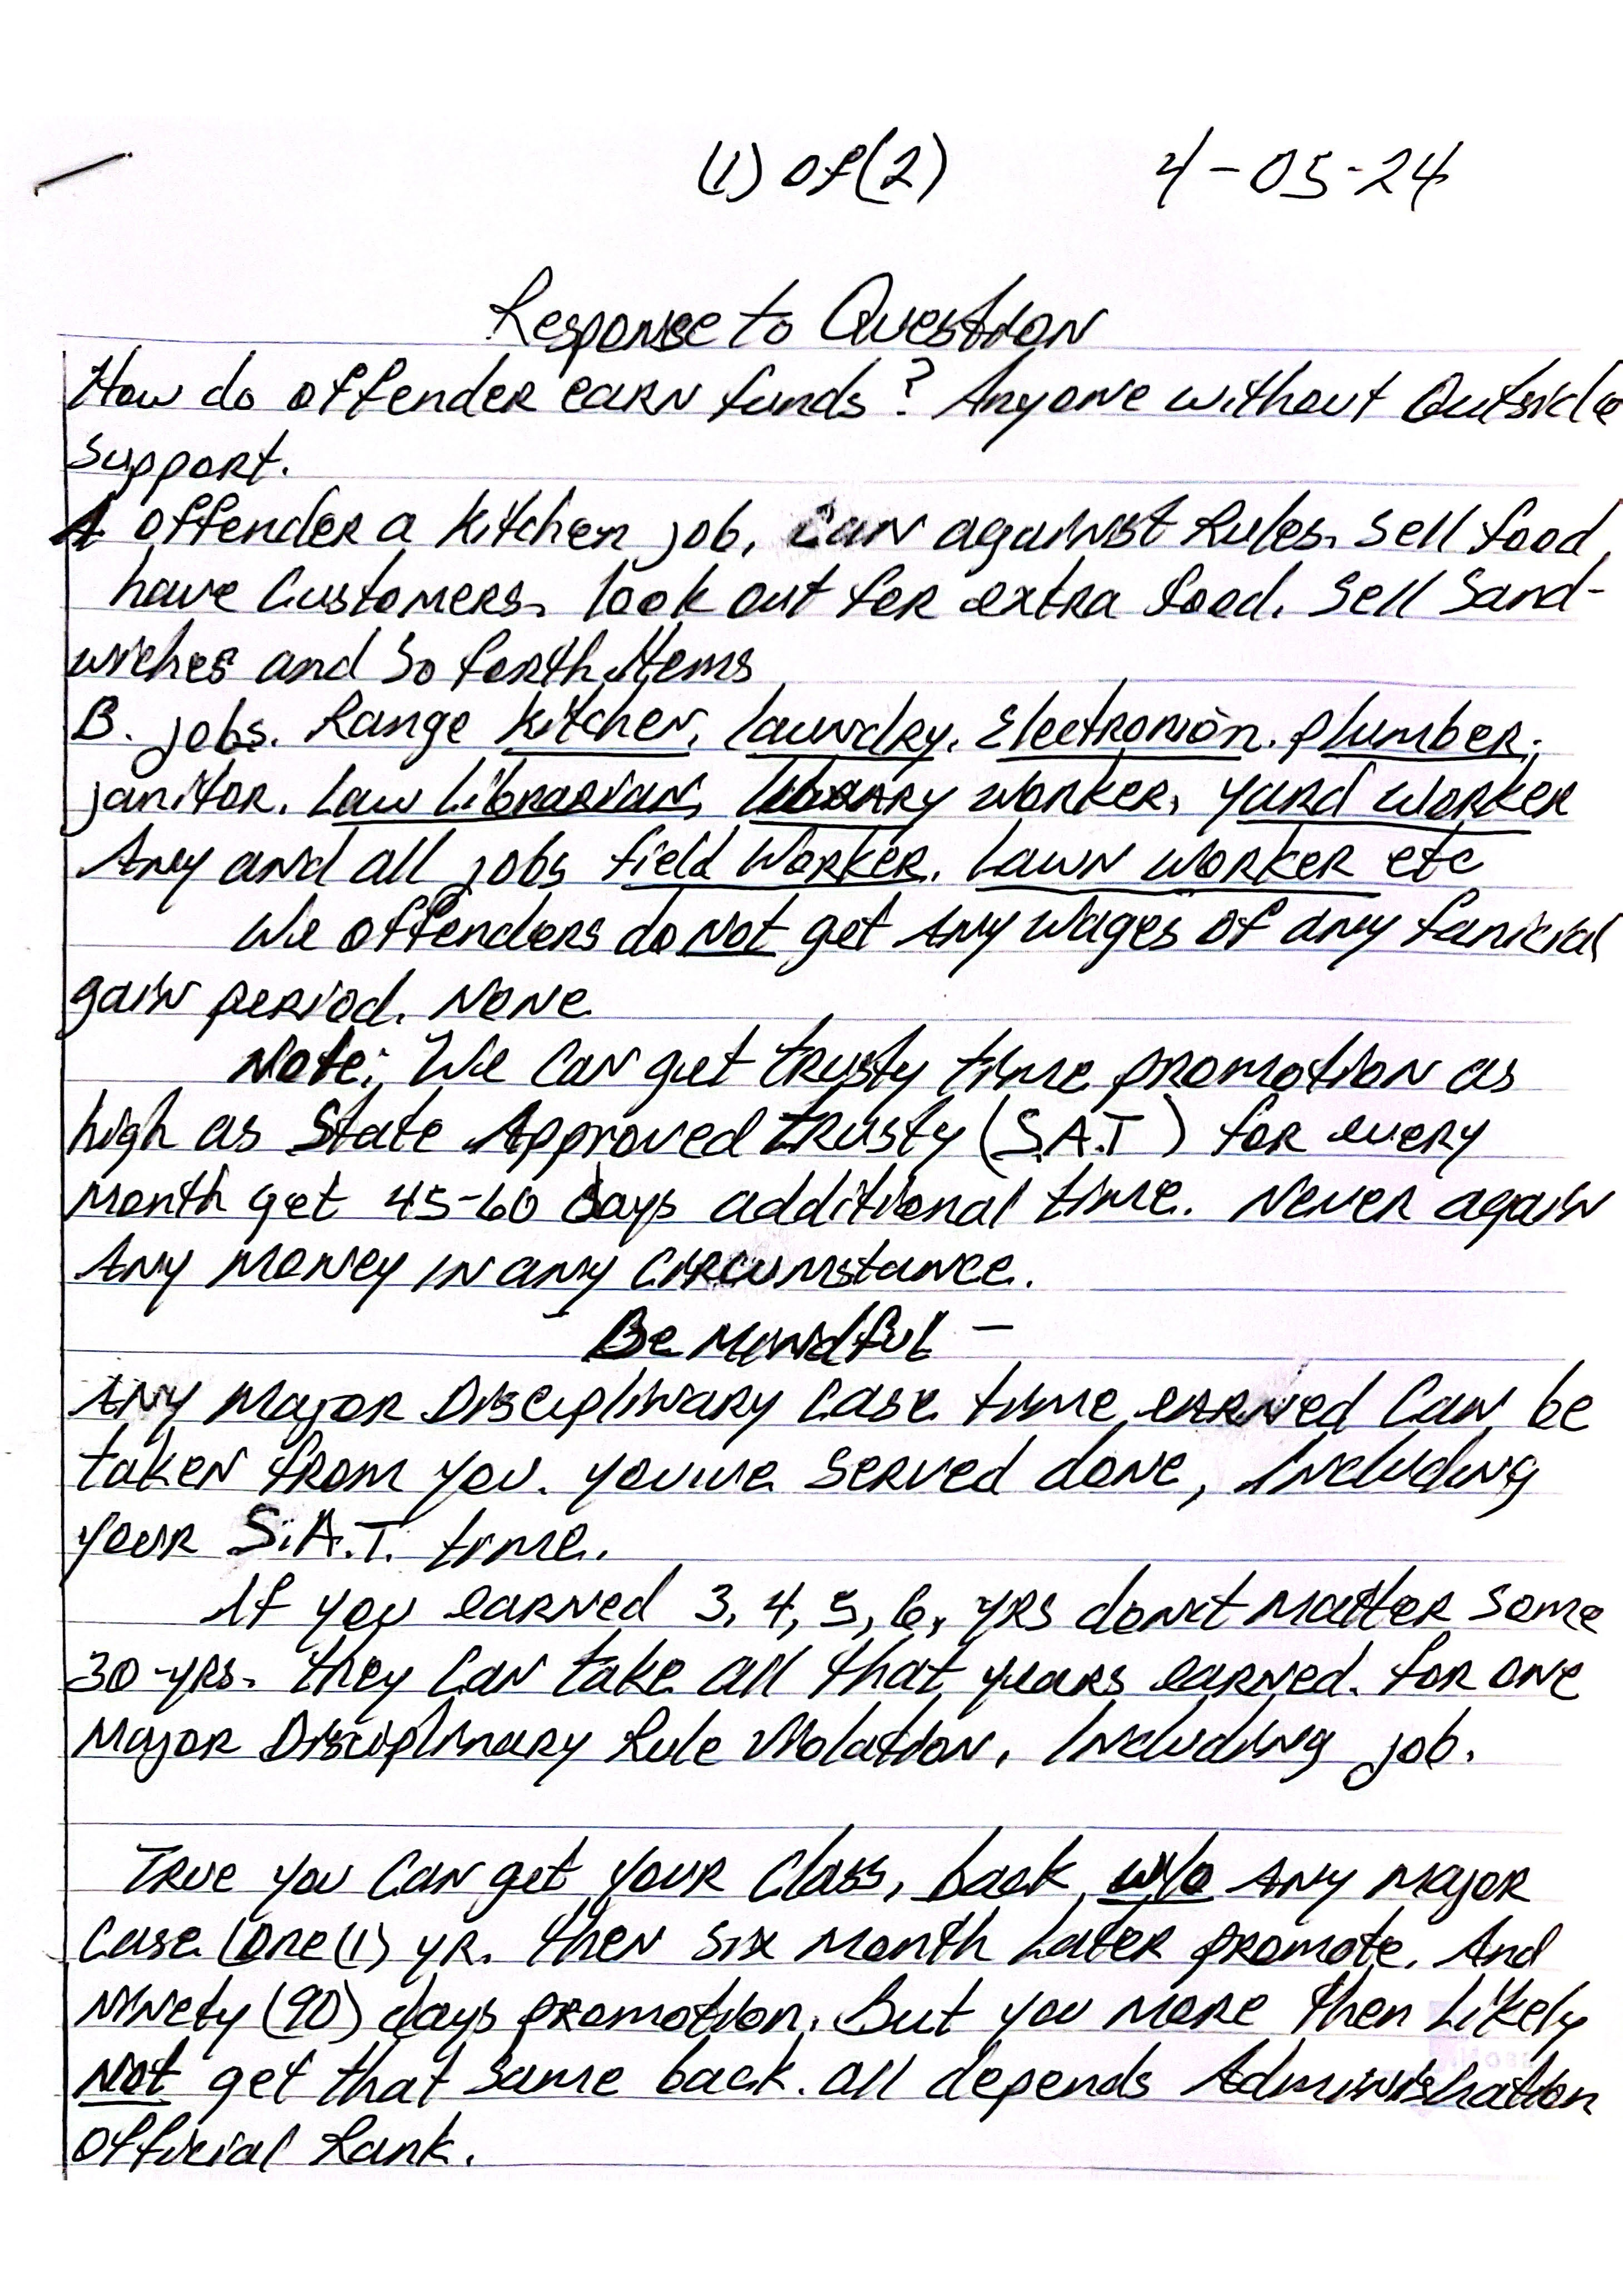 (1) of (2) 4-05-24
Response to Question
How do offender earn funds? Anyone without Outside
support.
A offender a kitchen job, can against Rules. Sell food,
have Customers. look out for extra food. Sell Sand-
wiches and so forth Items
B. jobs. Range kitchen, laundry, Electronion. plumber,
janitor. Law Librarian, library worker, yard worker
Any and all jobs field Worker. Lawn worker etc
We offenders do not get Any wages of any fanicial
gain period. None.
Note; We Can get trusty time promotion as
high as State Approved trusty (S.A.T) for every
month get 45-60 days additional time. Never again
Any money in any circumstance.
Be Mindful -
Any Major Disciplinary Case time earned Can be
taken from you. youve served done, Including
your S.A.T. time.
If you earned 3, 4, 5, 6, yrs donct matter some
30-yrs. they Can take all that years earned. for one
Major Disciplinary Rule Violation, Including job.
True you Can get your Class, back w/o Any major
Case (One (1) yr. then six month Later promote. And
Ninety (90) days promotion. But you more then Likely
Not get that same back. all depends Administration
Official Rank.